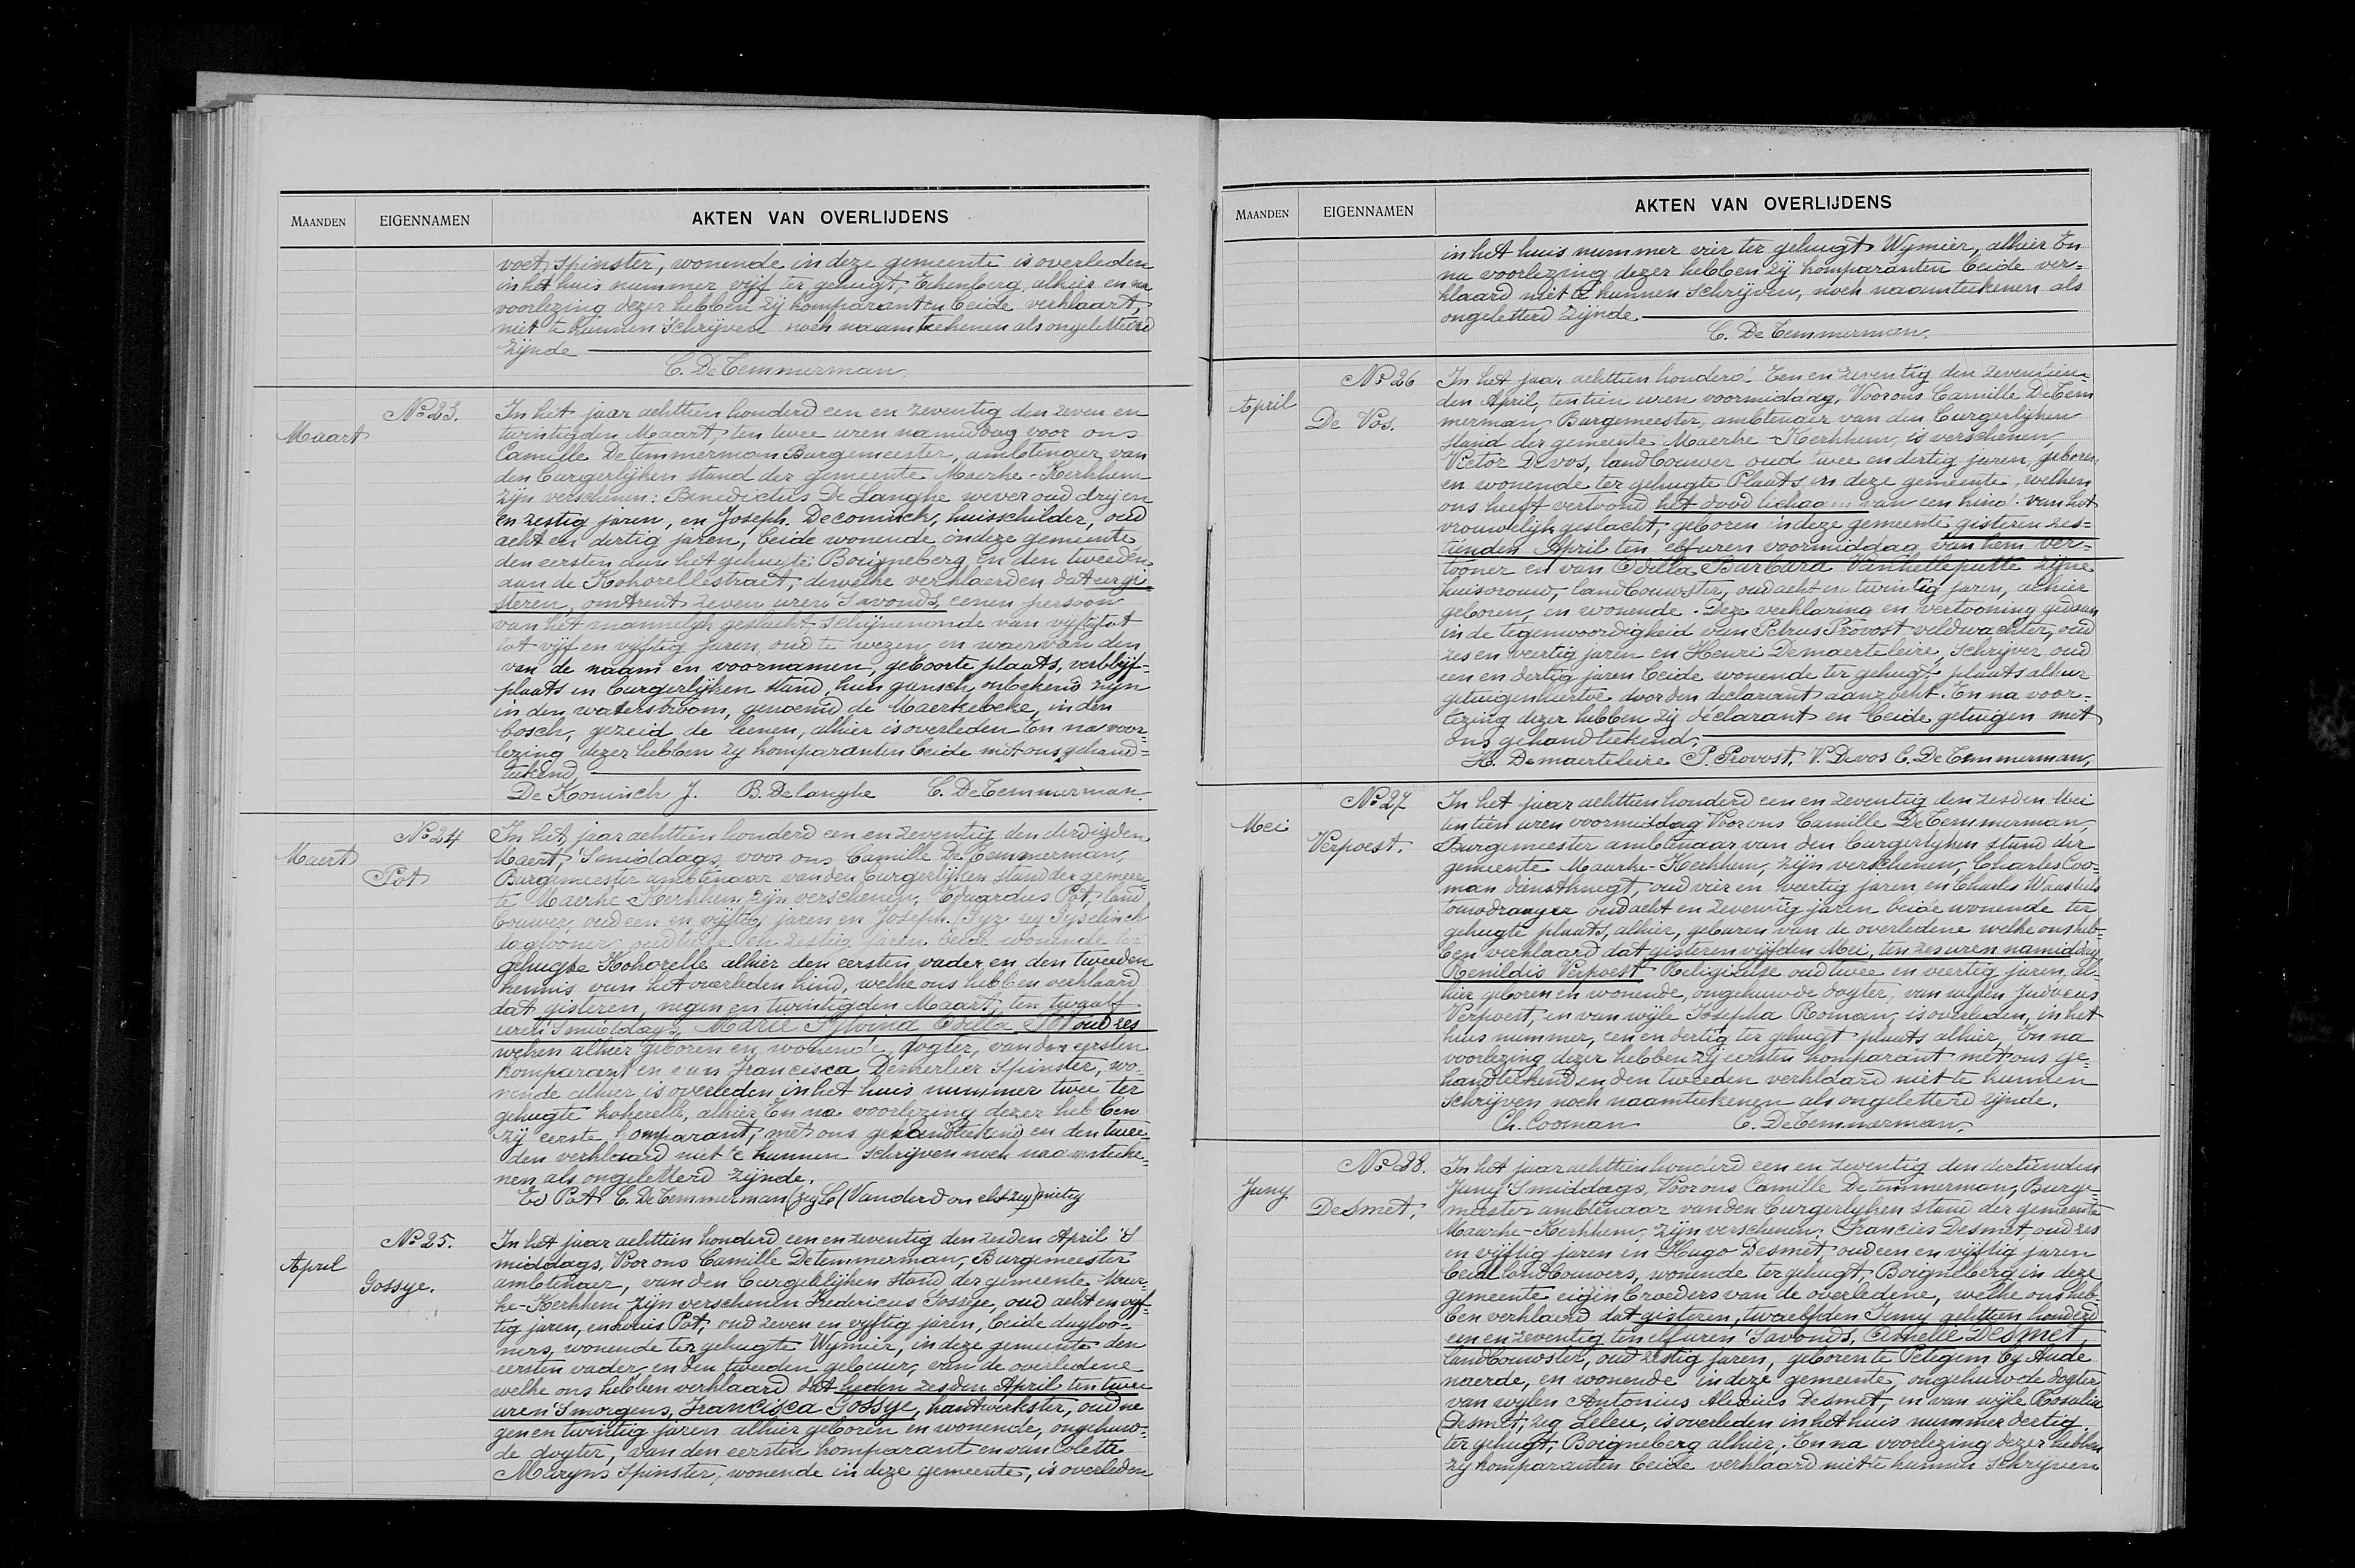 MAANDEN EIGENNAMEN AKTEN VAN OVERLIJDENS
voet, Spinster, wonende in deze gemeente is overleden
in het huis nummer vijf ter gehugt, Eekenberg, alhier en na
voorlezing dezer hebben zij komparanten beide verklaart,
niet te kunnen schrijven noch naamteekenen als ongeletterd
zijnde
C. DeTemmerman.
No 23.
Maart
In het jaar achttien honderd een en zeventig den zeven en
twintigden Maart, ten twee uren namiddag voor ons
Camille De temmerman Burgemeester, ambtenaer van
den burgerlijken stand der gemeente Maerke-Kerkhem
zijn verschenen: Benedictus De Langhe wever oud drij en
en zestig jaren, en Joseph. Deconinck, huisschilder, oud
acht en dertig jaren, beide wonende in deze gemeente
den eersten aan het gehugte Boigneberg en den tweeden
aan de Kohorellestraet, dewelke verklaerden dat eergi
steren, omtrent zeven uren 'S avonds, eenen persoon
van het mannelijk geslacht schijnenonde van vijftig tot
tot vijf en vijftig jaren, oud te wezen en waervan den
van de naam en voornamen geboorte plaats, verblijf=
plaats en burgerlijken stand, hun gansch onbekend zijn
in den waterstroom, genoemd de Maerkebeke, in den
bosch, gezeid de leenen, alhier is overleden En na voor=
lezing dezer hebben zy komparanten beide met ons gehand=
teekend
De Koninck J. B. Delanghe C. DeTemmerman.
No 24
Maert
Pot
In het jaar achttien honderd een en zeventig den derdigden
Maert, 'Smiddags, voor ons Camille De Temmerman,
Burgemeester ambtenaar van den burgerlijken stand der gemeen
te Maerke-Kerkhem zijn verschenen, Eduardus Pot, land
bouwer, oud een en vijftig jaren en Joseph. Tyz zey Tyselinck
dagloner, oud twee en zestig jaren beide wonende ter
gehugte Kohorelle alhier den eersten vader en den tweeden
kennis van het overleden kind, welke ons hebben verklaard
dat gisteren, negen en twintigden Maart, ten twaalf
uren 'Smiddags, Marie Sylvina Odilla Pot oud zes
weken alhier geboren en wonende, dogter, van den eersten
komparant en van Francisca Demerlier Spinster, wo-
nende alhier is overleden in het huis nummer twee ter
gehugte kokerelle, alhier En na voorlezing dezer hebben
zij eerste komparant, met ons gehandteekend en den twee=
den verklaard niet te kunnen schrijven noch naamteeke=
nen als ongeletterd zijnde.
Ed Pot C. DeTemmerman (zeg C/ Vanderdonckt zeg) nietig
No 25.
April
Gossye.
In het jaar achttien honderd een en zeventig den zesden April 'S
middags, Voor ons Camille Detemmerman, Burgemeester
ambtenaer, van den burgerlijken stand der gemeente Maer=
ke-Kerkhem zijn verschenen Fredericus Gossye, oud acht en vyf=
tig jaren, en Louis Pot, oud zeven en vyftig jaren, beide dagloo=
ners, wonende ter gehugte Wijmier, in deze gemeente den
eersten vader, en den tweeden gebuer, van de overledene
welke ons hebben verklaard dat heden zesden April ten twee
uren 'Smorgens, Francisca Gossye, hantwerkster, oud ne
gen en twintig jaren alhier geboren en wonende, ongehuw=
de dogter, van den eersten komparant en van Coletta
Maryns Spinster, wonende in deze gemeente, is overleden
MAANDEN EIGENNAMEN AKTEN VAN OVERLIJDENS
in het huis nummer vier ter gehugt Wymier, alhier En
na voorlezing dezer hebben zij komparanten beide ver=
klaard niet te kunnen schrijven, noch naamteekenen als
ongeletterd zijnde.
C. DeTemmerman.
No 26
April
De Vos.
In het jaar achttien honderd Een en zeventig den zeventien=
den April, ten tien uren voormiddag, Voor ons Camille DeTem
merman, Burgemeester, ambtenaer van den burgerlijken
stand der gemeente Maerke-Kerkhem, is verschenen,
Victor Devos, landbouwer oud twee en dertig jaren, geboren
en wonende ter gehugte Plaats in deze gemeente, welken
ons heeft vertoond het dood lichaam van een kind van het
vrouwelijk geslacht, geboren in deze gemeente gisteren zes=
tienden April ten elf uren voormiddag van hem ver=
tooner en van Odilla Barbara Vanhelleputte zijne
huisvrouw, landbouwster, oud acht en twintig jaren, alhier
geboren, en wonende. Deze verklaring en vertooning gedaan
in de tegenwoordigheid van Petrus Provost veldwachter, oud
zes en veertig jaren en Henri Demaerteleire, schrijver oud
een en dertig jaren beide wonende ter gehugte plaats alhier
getuigen hiertoe door den declarant aanzocht. En na voor-
lezing dezer hebben zij déclarant en beide getuigen met
ons gehandteekend.
H. Demaerteleire P. Provost, V. Devos C. DeTemmerman,
No 27
Mei
Verpoest.
In het jaar achttien honderd een en zeventig den zesden Mei
ten tien uren voormiddag Voor ons Camille DeTemmerman,
Burgemeester ambtenaar van den burgerlijken stand der
gemeente Maerke-Kerkhem, zijn verschenen, Charles Coo=
man dienstknegt, oud vier en veertig jaren, en Charles Waushels
touwdraayer oud acht en zeventig jaren beide wonende ter
gehugte plaats, alhier, geburen van de overledene welke ons heb-
ben verklaard dat gisteren vijfden Mei, ten zes uren namiddag
Renildis Verpoest Religieuse oud twee en veertig jaren, al-
hier geboren en wonende, ongehuwde dogter, van wylen Judocus
Verpoest, en van wyle Josepha Roman, is overleden, in het
huis nummer, een en dertig ter gehugt plaats alhier, En na
voorlezing dezer hebben zij eersten komparant met ons ge=
handteekend en den tweeden verklaard niet te kunnen
schrijven noch naamteekenen als ongeletterd zijnde.
Ch. Cooman C. DeTemmerman.
No 28.
Juny
Desmet.
In het jaar achttien honderd een en zeventig den dertienden
Juny 'Smiddags, Voor ons Camille Detemmerman, Burge=
meester ambtenaar van den burgerlijken stand der gemeente
Maerke-Kerkhem, zijn verschenen, Francies Desmet, oud zes
en vijftig jaren en Hugo Desmet, oud een en vijftig jaren
beide landbouwers, wonende ter gehugt, Boigneberg in deze
gemeente eigen broeders van de overledene, welke ons heb-
ben verklaerd dat gisteren, twaelfden Juny achttien honderd
een en zeventig ten elf uren 'Savonds, Amelie Desmet,
landbouwster, oud zestig jaren, geboren te Petegem by Aude
naerde, en wonende in deze gemeente, ongehuwde dogter
van wylen Antonius Alexius Desmet, en van wijle Rosalia
(Desmet, zeg Leleu, is overleden in het huis nummer dertig
ter gehugt, Boigneberg alhier. En na voorlezing dezer hebben
zy komparanten beide verklaard niet te kunnen schrijven